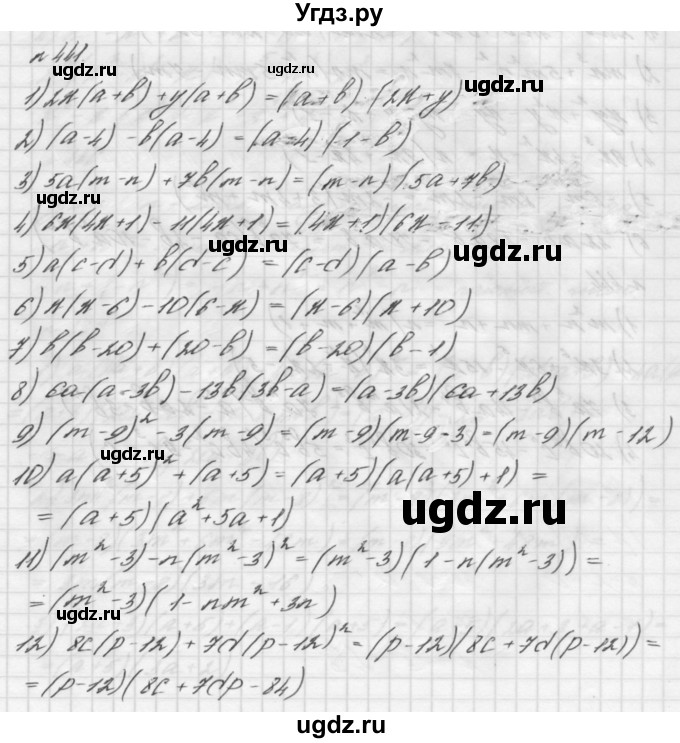 Угдз.ру
n 441
1) 2x(a+b)+y(a+b)=(a+b)(2x+y)
2) (a-4)-b(a-4)=(a-4)(1-b)
3) 5a(m-n)+7b(m-n)=(m-n)(5a+7b)
4) 6x(4x+1)-11(4x+1)=(4x+1)(6x-11)
5) a(c-d)+b(d-c)=(c-d)(a-b)
6) x(x-6)-10(6-x)=(x-6)(x+10)
7) b(b-20)+(20-b)=(b-20)(b-1)
8) 6a(a-3b)-13b(3b-a)=(a-3b)(6a+13b)
9) (m-9)²-3(m-9)=(m-9)(m-9-3)=(m-9)(m-12)
10) a(a+5)²+(a+5)=(a+5)(a(a+5)+1)=
=(a+5)(a²+5a+1)
11) (m²-3)-n(m²-3)²=(m²-3)(1-n(m²-3))=
=(m²-3)(1-nm²+3n)
12) 8c(p-12)+7d(p-12)²=(p-12)(8c+7d(p-12))=
=(p-12)(8c+7dp-84)
ugdz.ru
ugdz.ru
ugdz.ru
ugdz.ru
ugdz.ru
ugdz.ru
ugdz.ru
ugdz.ru
ugdz.ru
ugdz.ru
ugdz.ru
ugdz.ru